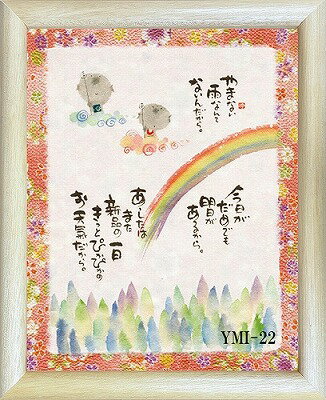 やまない
雨なんて
ないんだから。
今日が
だめでも
明日が
あるから。
あしたは
また
新品の一日
きっとぴかぴかの
お天気だから。
YMI-22